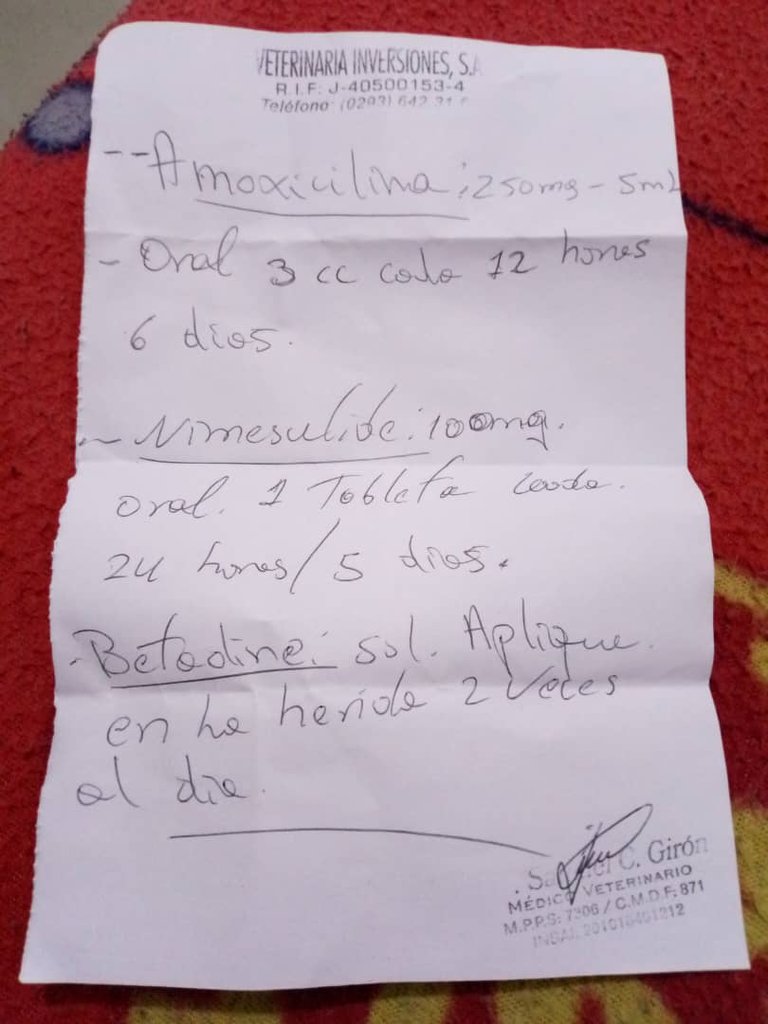 VETERINARIA INVERSIONES, S.A
R.I.F: J-40500153-4
Teléfono: (0293) 642 31
-- Amoxicilina; 250mg - 5ml
- Oral 3 cc cada 12 horas
6 dias.
- Nimesulide: 100mg.
oral. 1 Tableta cada.
24 horas/5 dias.
- Betadine: sol. Aplique.
en la herida 2 veces
al dia.
C. Girón
MÉDICO VETERINARIO
M.P.P.S: 7306 / C.M.D.F: 871
INSAI